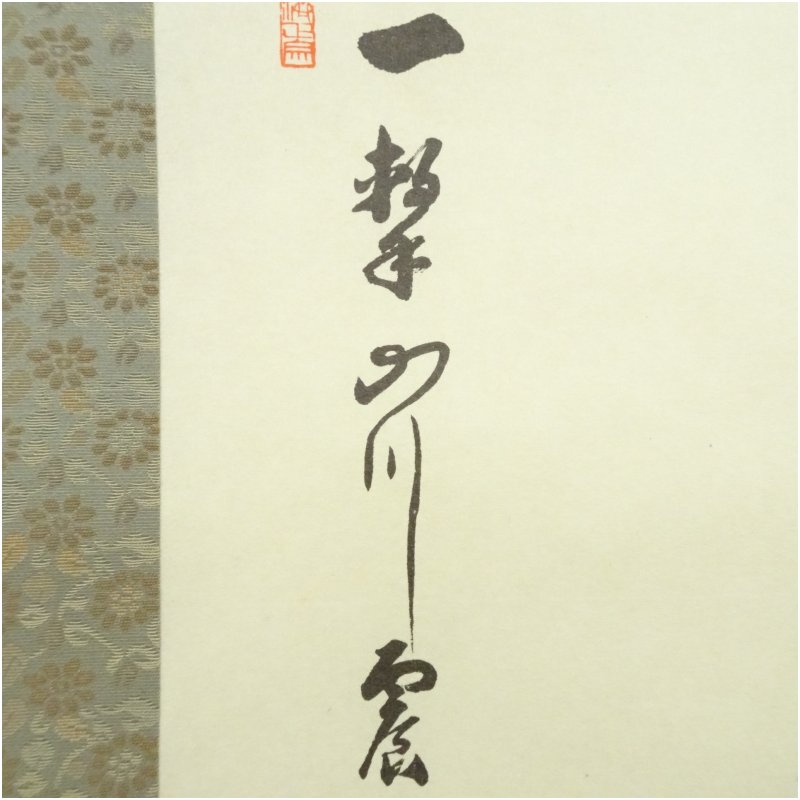 一擊山川震